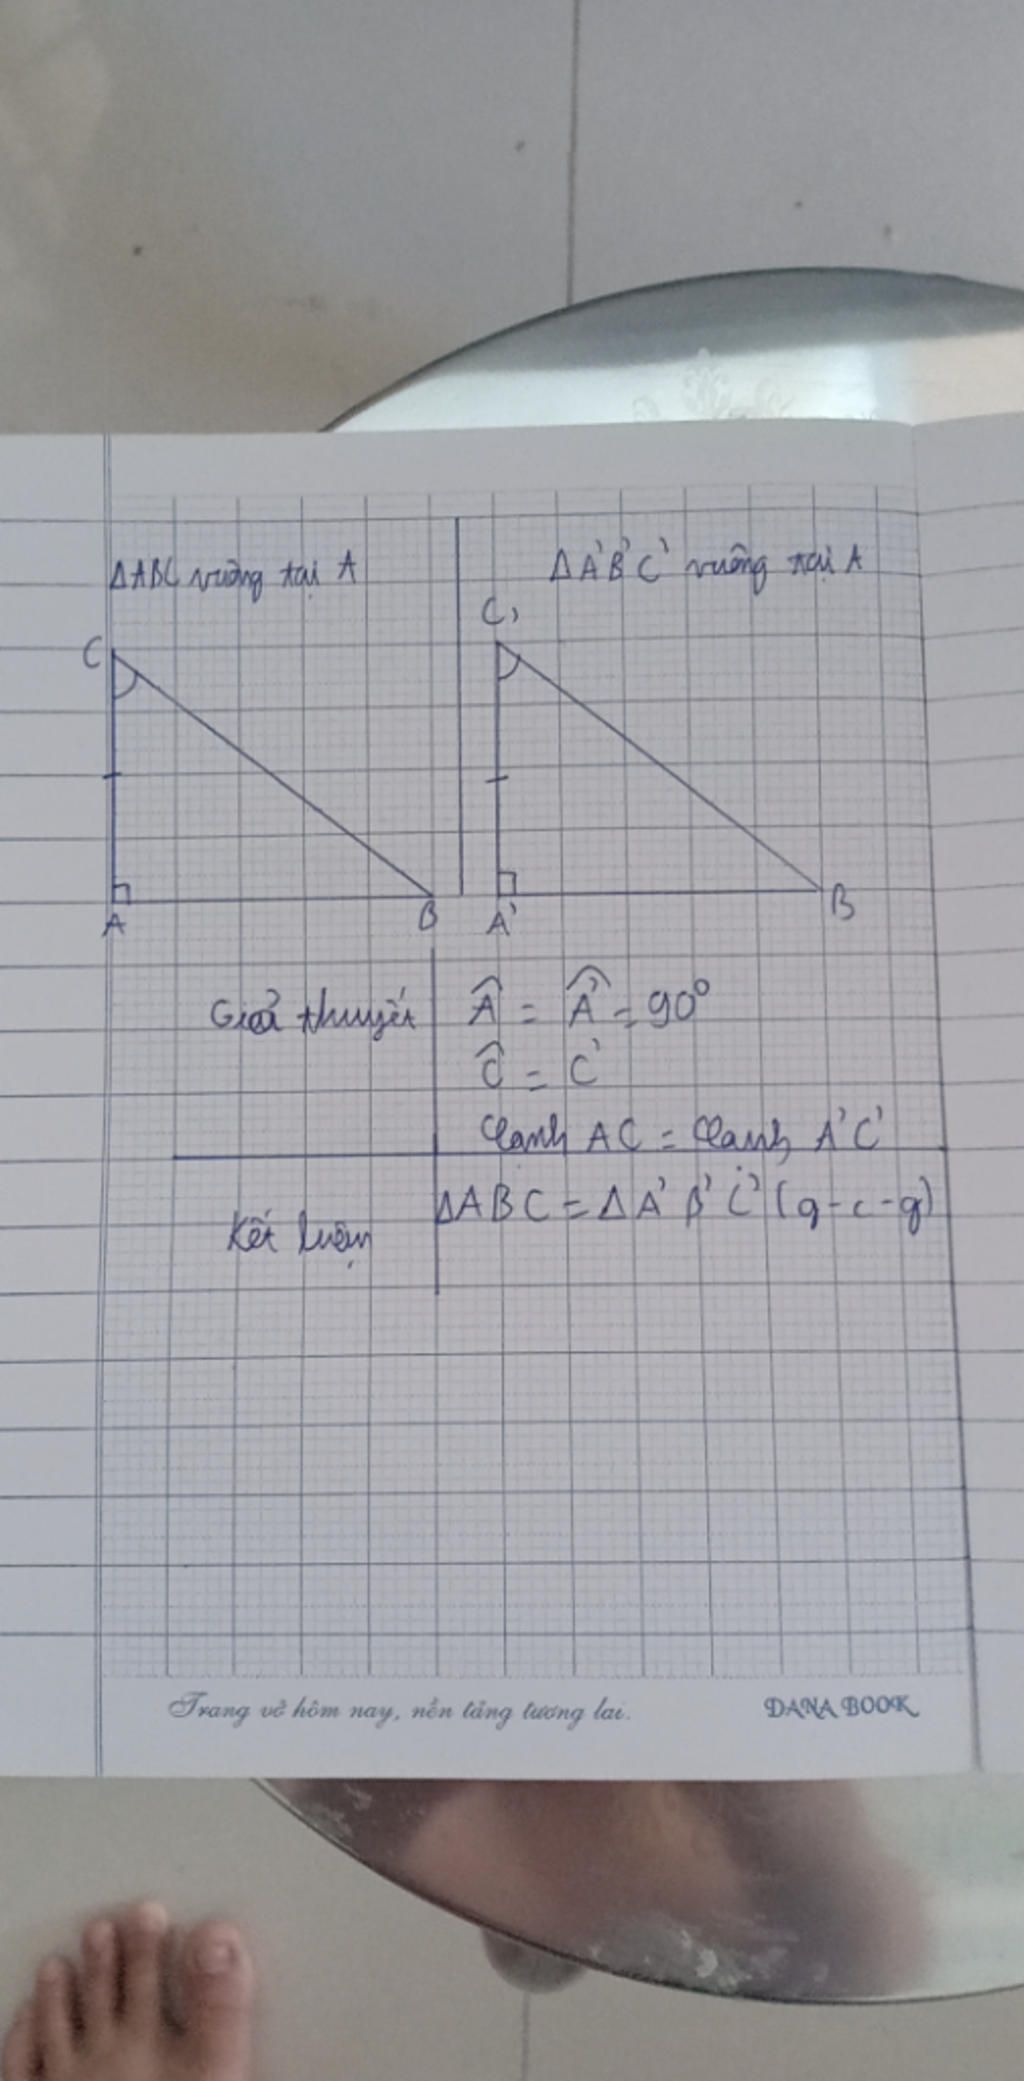 ΔABC vuông tại A
ΔA'B'C' vuông tại A
C
C'
A
B
A'
B
Giả thuyết
Â = Â' = 90°
Ĉ = C'
Cạnh AC = Cạnh A'C'
Kết luận
ΔABC = ΔA'B'C' (g-c-g)
Trang vở hôm nay, nền tảng tương lai.
DANA BOOK